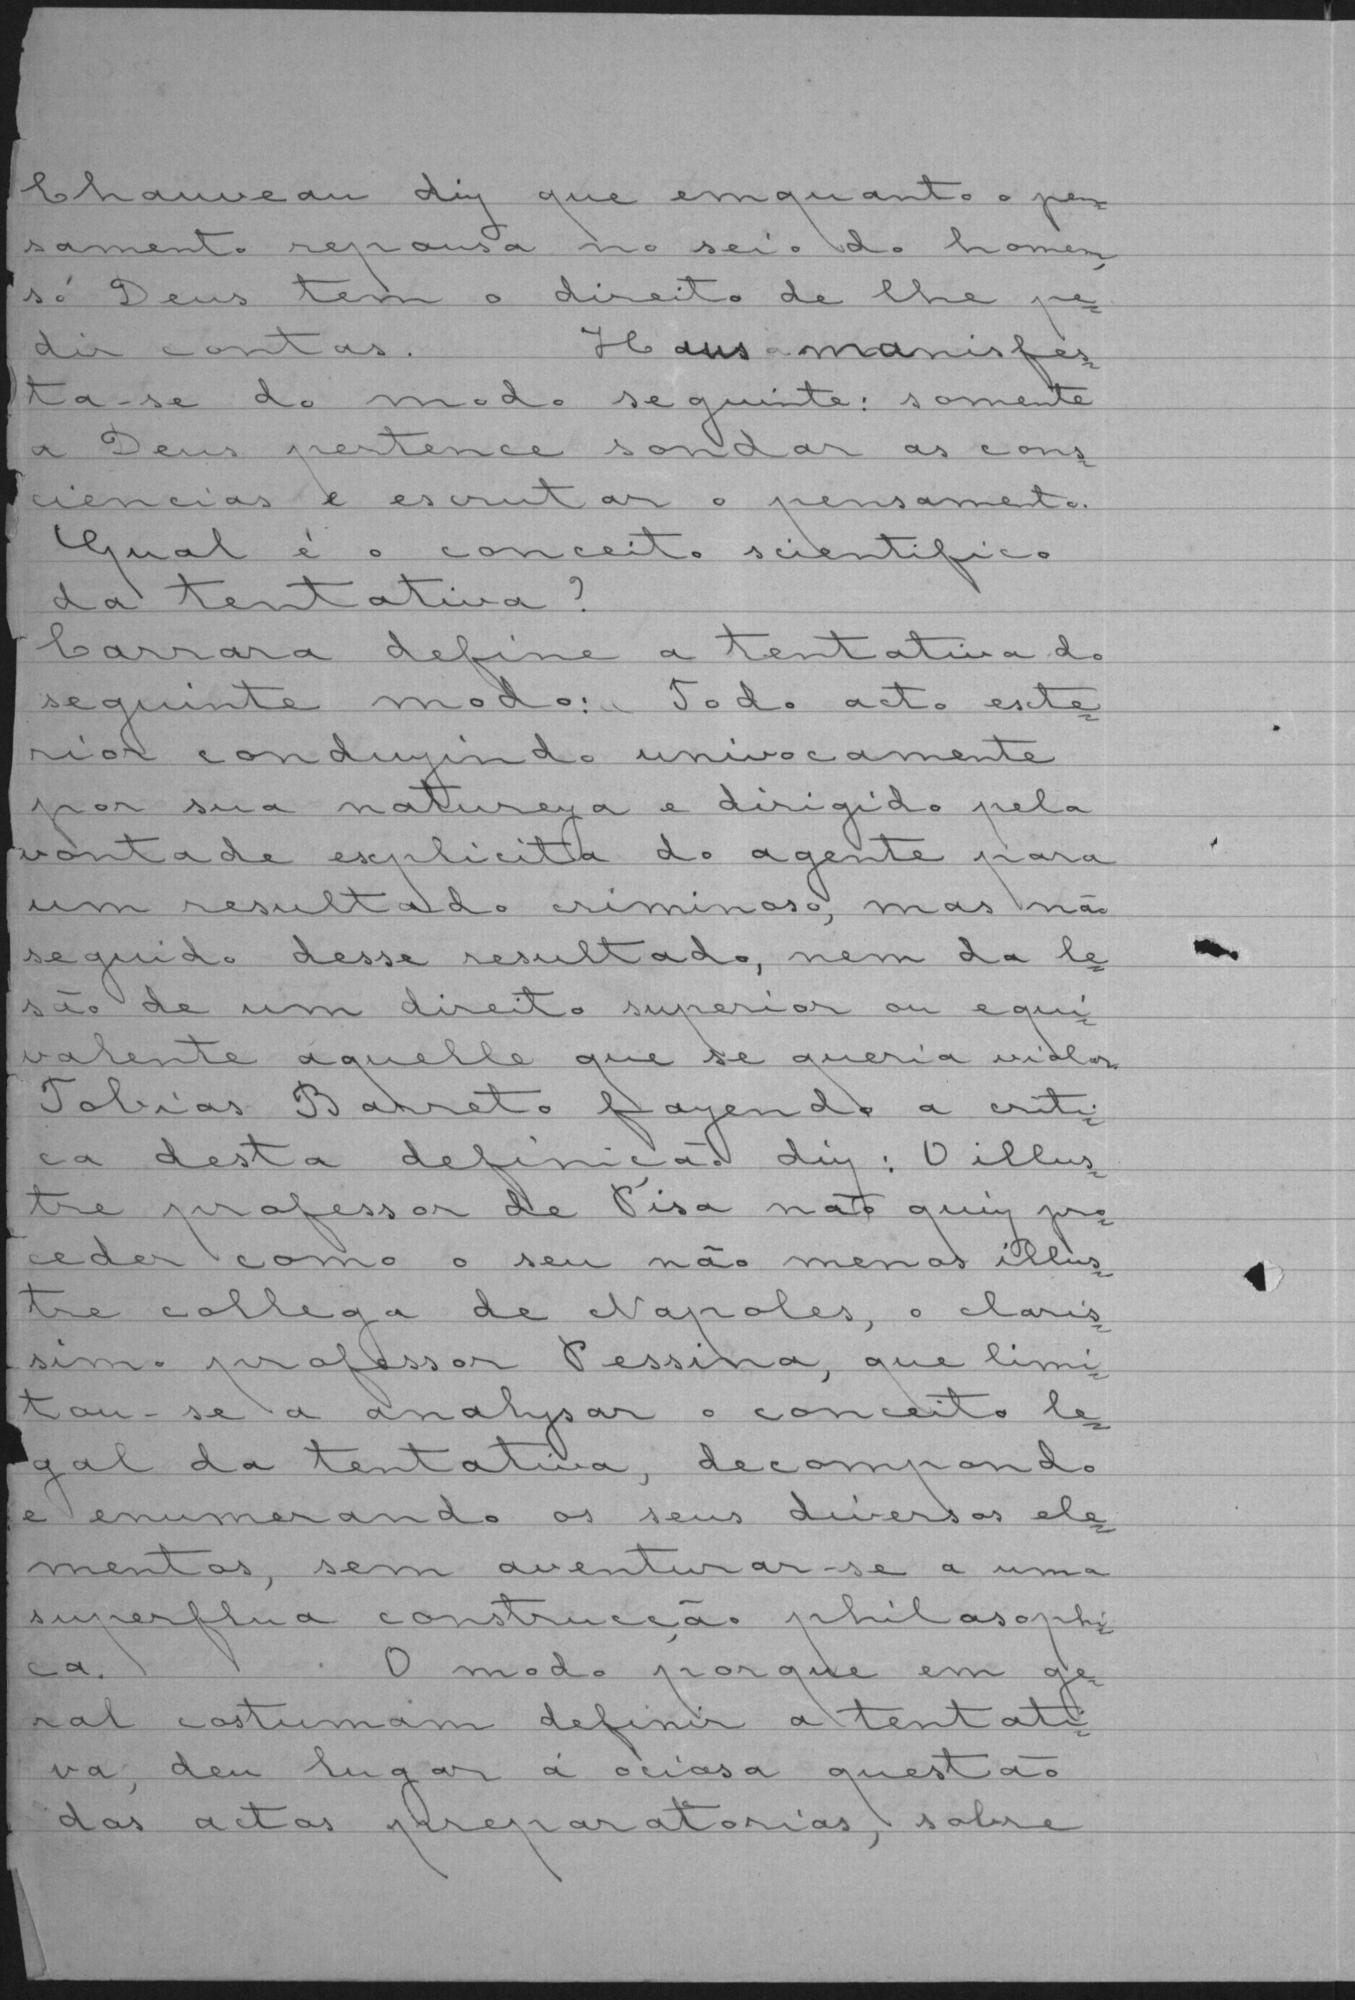 Chauveau diz que emquanto o pen=
samento repousa no seio do homem,
só Deus tem o direito de lhe pe=
dir contas. Haus manisfes=
ta-se do modo seguinte: somente
a Deus pertence sondar as cons=
ciencias e escrutar o pensamento.
Qual é o conceito scientifico
da tentativa?
Carrara define a tentativa do
seguinte modo: Todo acto exte=
rior conduzindo univocamente
por sua natureza e dirigido pela
vontade explicita do agente para
um resultado criminoso, mas não
seguido desse resultado, nem da le=
são de um direito superior ou equi=
valente áquelle que se queria violar.
Tobias Barreto fazendo a criti=
ca desta definição diz: O illus=
tre professor de Pisa não quiz pro=
ceder como o seu não menos illus=
tre collega de Napoles, o claris=
simo professor Pessina, que limi=
tou-se a analysar o conceito le=
gal da tentativa, decompondo
e enumerando os seus diversos ele=
mentos, sem aventurar-se a uma
superflua construcção philosophi=
ca. O modo porque em ge=
ral costumam definir a tentati=
va, deu lugar á ociosa questão
dos actos preparatorios, sobre